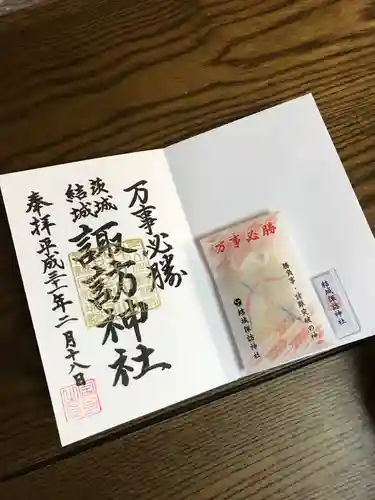 万事必勝
茨城
結城
諏訪神社
奉拝平成三十一年二月十八日
万事必勝
勝負事・諸難突破の神
結城諏訪神社
結城諏訪神社